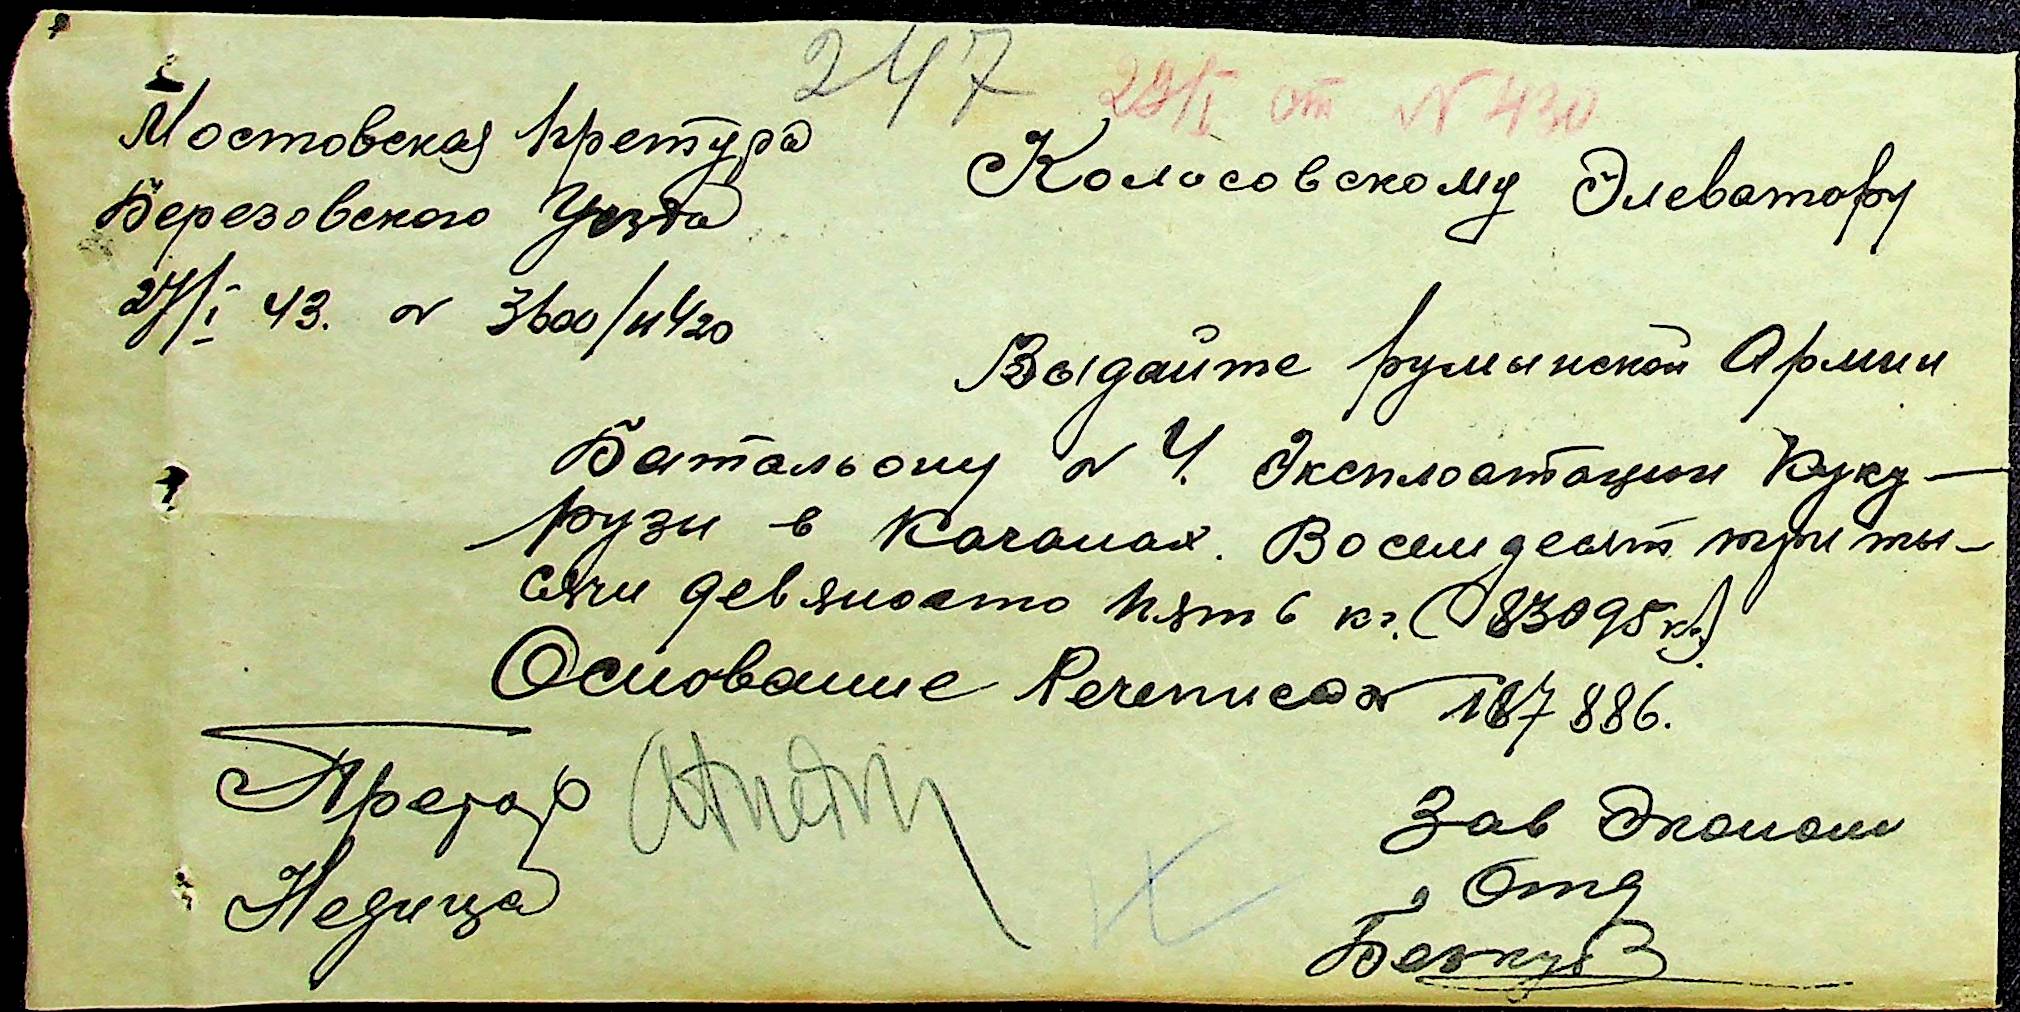 247
29/I от N 430
Мостовская Претура
Березовского Уезда
27/I 43. N 3600/и420
Колосовскому Элеватору
Выдайте румынской Армии
Батальону N 4. Эксплоатации Куку-
рузи в Качанах. Восемдесят три ты-
сячи девяносто пять кг. (83095 кг.)
Основание Речеписа N 187886.
Претор
Недица
Зав Эконом
Отд